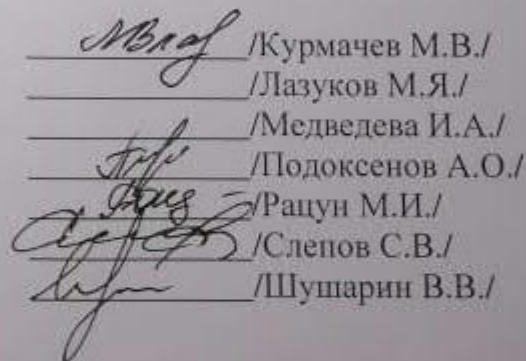 /Курмачев М.В./
/Лазуков М.Я./
/Медведева И.А./
/Подоксенов А.О./
/Рацун М.И./
/Слепов С.В./
/Шушарин В.В./